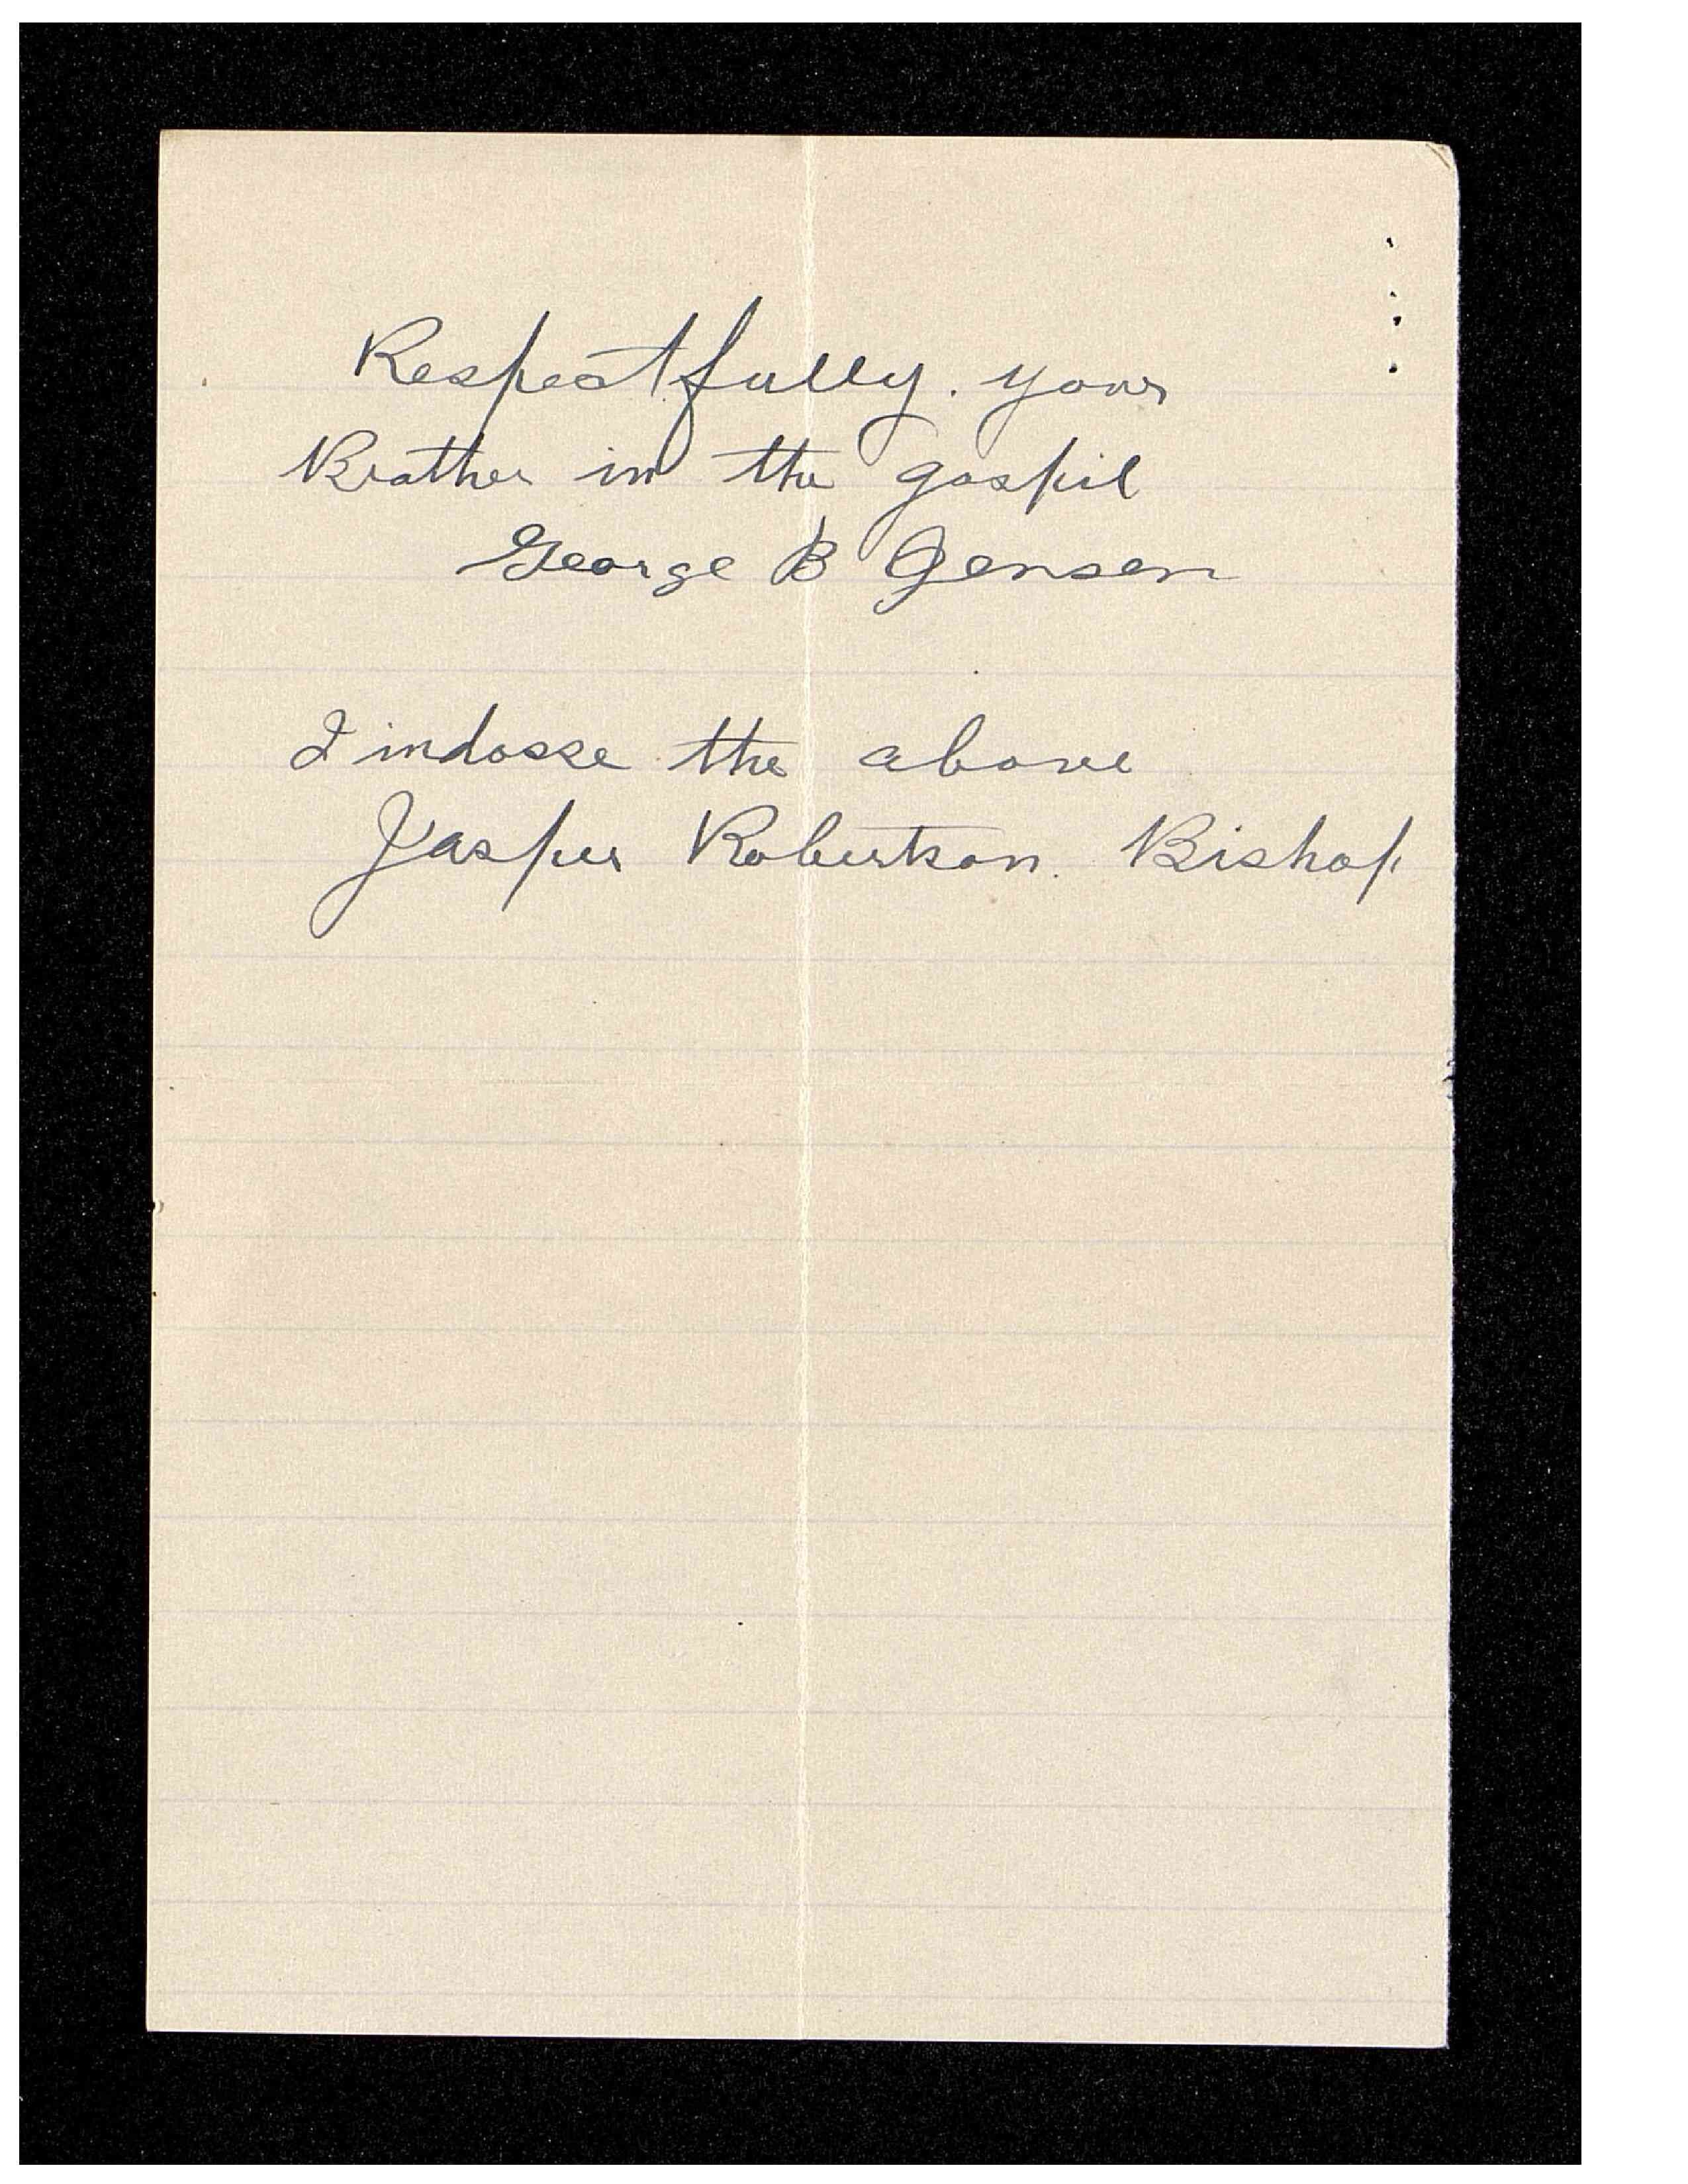 Respectfully. your
Brother in the gospil
George B Jensen
I indosse the above
Jasper Robertson. Bishop